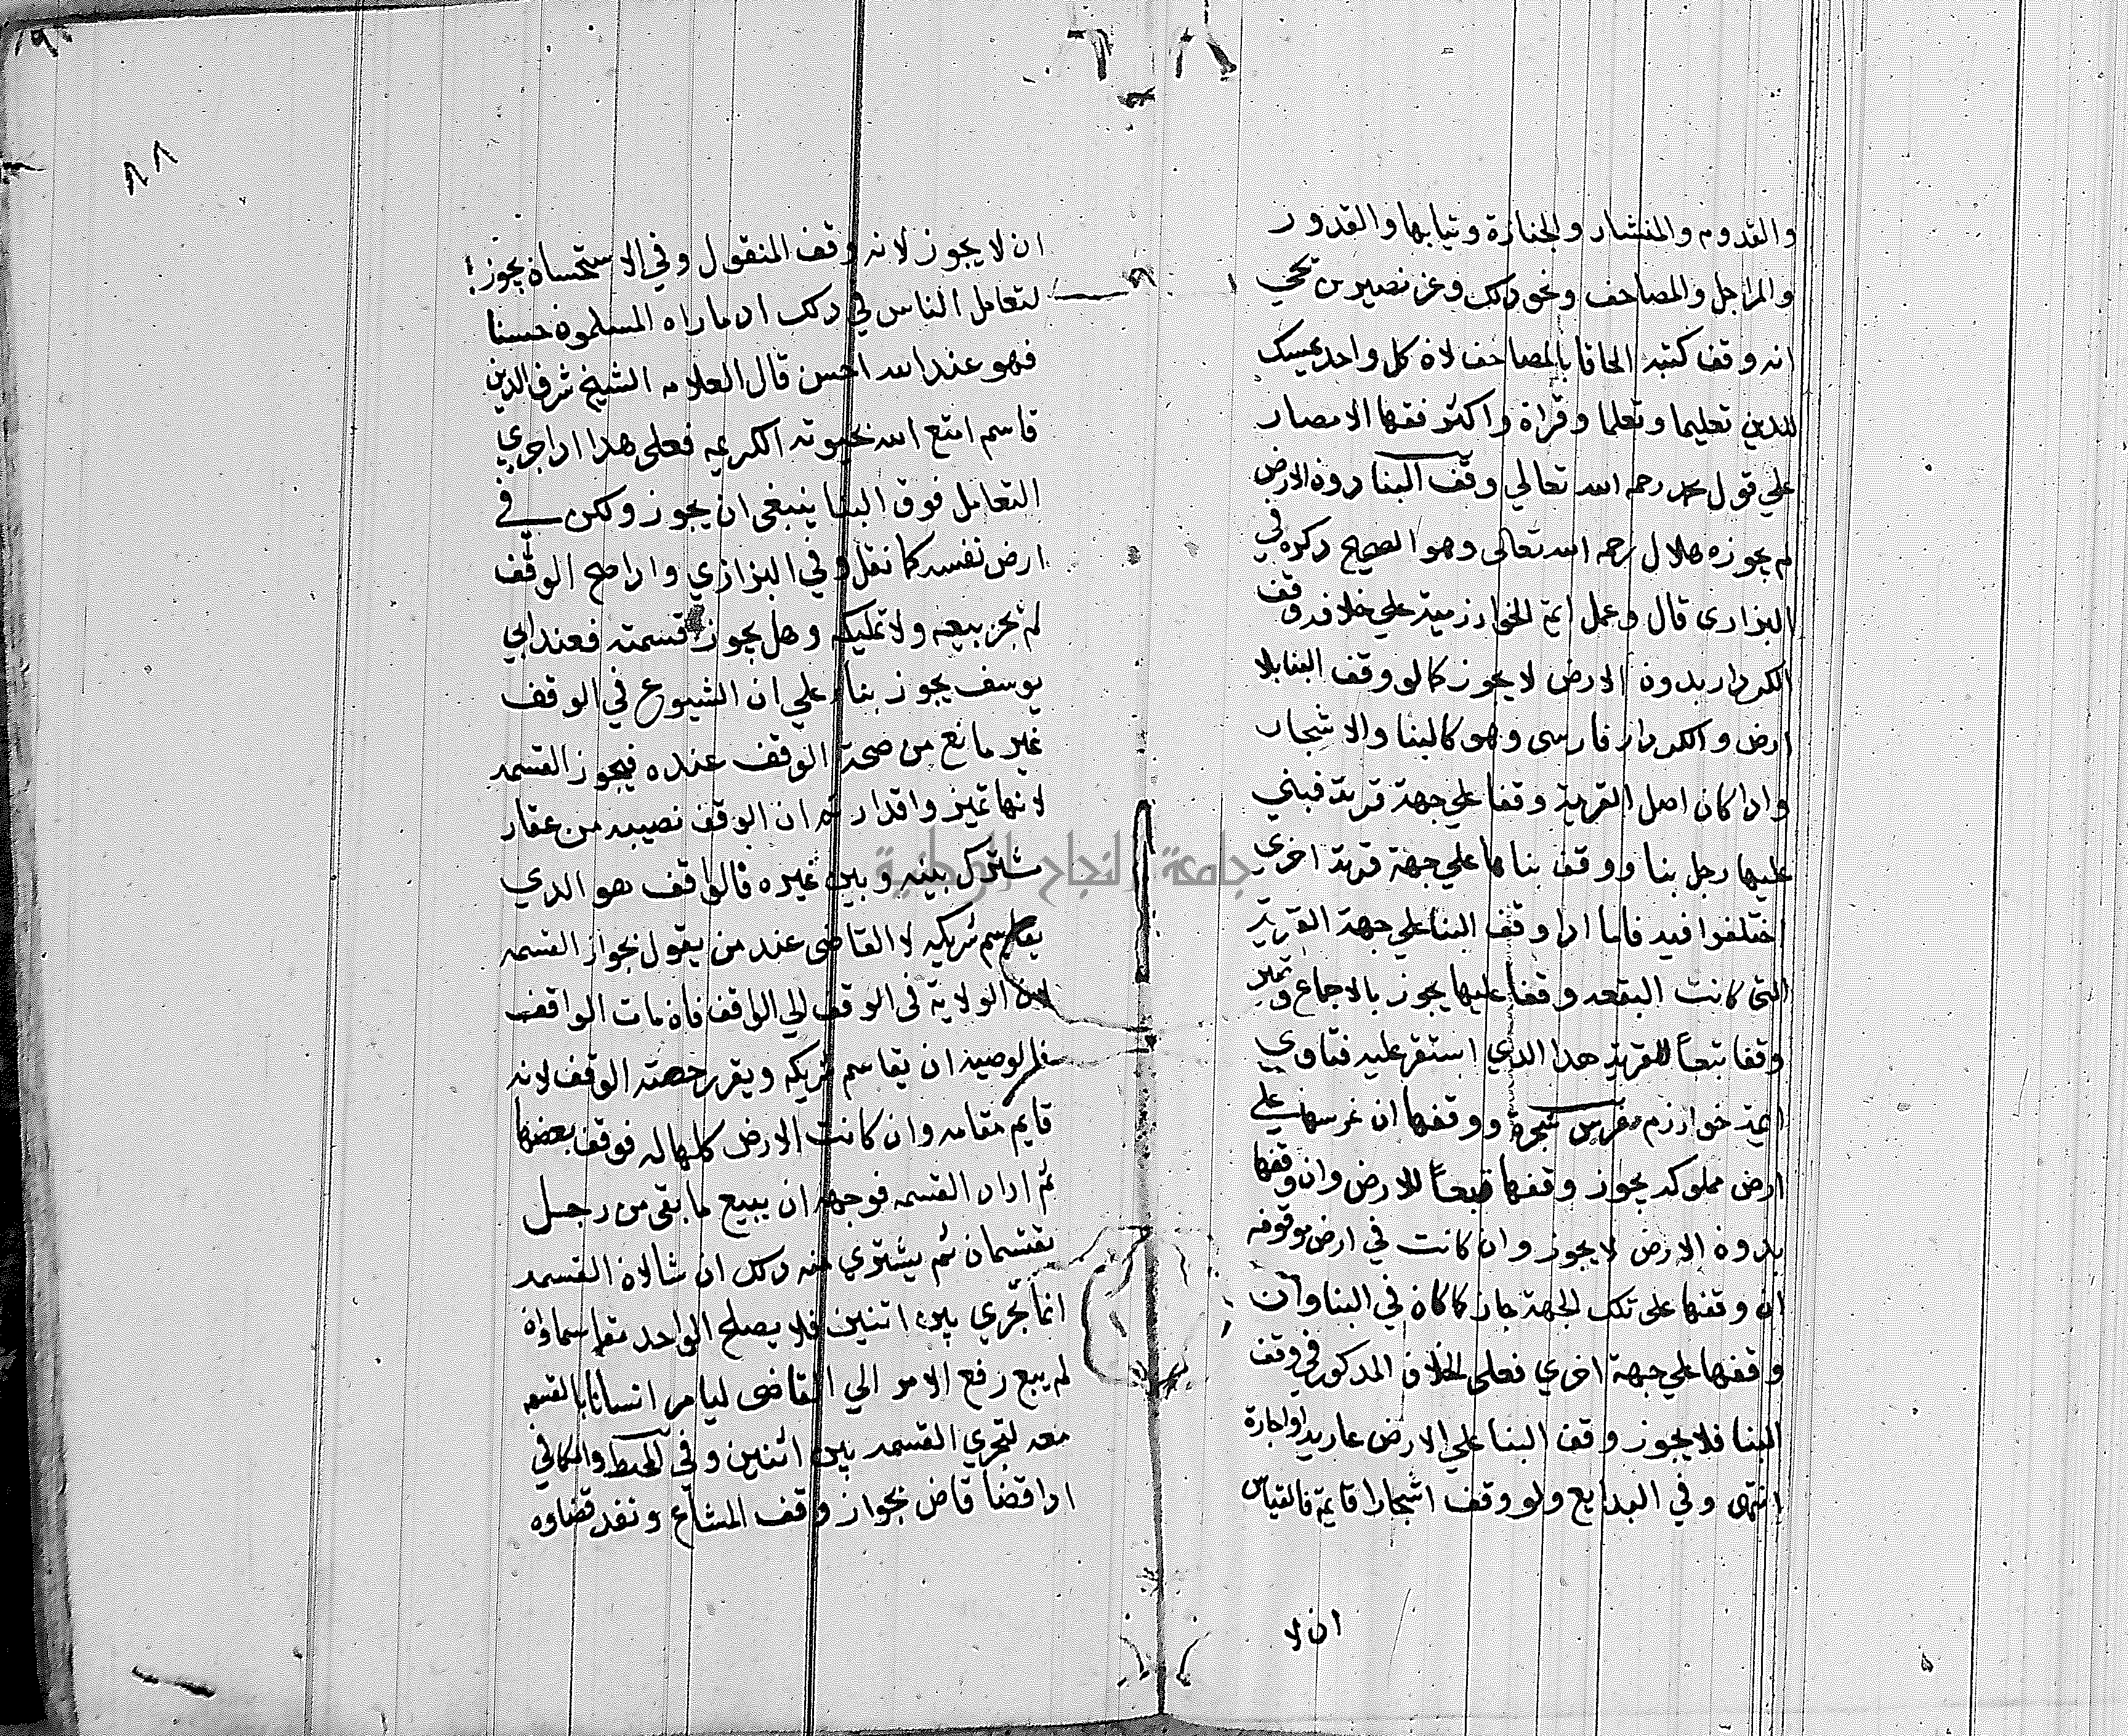 والقدوم والمنشار والجنازة وثيابها والقدور
والمراجل والمصاحف ونحو دلك وعن نصير بن يحيى
انه وقف كتبه الحاقا بالمصاحف لان كل واحد يمسك
للدين تعليما وتعلما وقراة واكثر فقها الامصار
علي قول محمد رحمه الله تعالي وقف البنا دون الارض
لم يجوزه هلال رحمه الله تعالى وهو الصحيح دكره في
البزازى قال وعمل ايمة الخوارزمية علي خلافه وقف
الكردار بدون الارض لا يجوز كما لو وقف البنا بلا
ارض والكردار فارسى وهو كالبنا والاشجار
وادا كان اصل القرية وقفا علي جهة قربة فبني
عليها رجل بنا ووقف بناها علي جهة قربة اخري
اختلفوا فيه فاما ادا وقف البنا علي جهة القربة
التى كانت البقعه وقفا عليها يجوز بالاجماع وتصير
وقفا تبعاً للقرية هدا الدي استقر عليه فتاوي
ايمة خوارزم غرس شجرة ووقفها ان غرسها علي
ارض مملوكه يجوز وقفها تبعاً للارض وان وقفها
بدون الارض لا يجوز وان كانت في ارض موقوفه
ان وقفها على تلك الجهة جاز كما كان في البنا وان
وقفها علي جهة اخري فعلى الخلاف المدكور في وقف
البنا فلا يجوز وقف البنا علي الارض عارية او اجارة
انتهى وفي البدايع ولو وقف اشجارا قايمة فالقياس
ان لا
٨٨
ان لا يجوز لانه وقف المنقول وفي الاستحسان يجوز
لتعامل الناس في دلك اد ماراه المسلمون حسنا
فهو عند الله احسن قال العلامه الشيخ شرف الدين
قاسم امتع الله بحيوته الكريمه فعلى هدا ادا جري
التعامل فوق البنا ينبغى ان يجوز ولكن في
ارض نفسه كما نقل وفي البزازي وادا صح الوقف
لم يجز بيعه ولا تمليكه وهل يجوز قسمته فعند ابي
يوسف يجوز بناء علي ان الشيوع في الوقف
غير مانع من صحة الوقف عنده فيجوز القسمه
لانها تميز وافراز ثم ان الوقف نصيبه من عقار
مشترك بينه وبين غيره فالواقف هو الدي
يقاسم شريكه لا القاضى عند من يقول بجواز القسمه
لان الولاية فى الوقف الي الواقف فان مات الواقف
فلوصيه ان يقاسم شريكه ويقرر حصته الوقف لانه
قايم مقامه وان كانت الارض كلها له فوقف بعضها
ثم اراد القسمه فوجهه ان يبيع ما بقى من رجل
يقتسمان ثم يشتري منه دلك ان شا لان القسمه
انما تجري بين اتنين فلا يصلح الواحد مقاسما وان
لم يبع رفع الامر الي القاضى ليامر انسانا بالقسمه
معه لتجري القسمه بين اثنين وفي المحيط والكافي
ادا قضا قاض بجواز وقف المشاع ونفد قضاوه
جامعة النجاح الوطنية